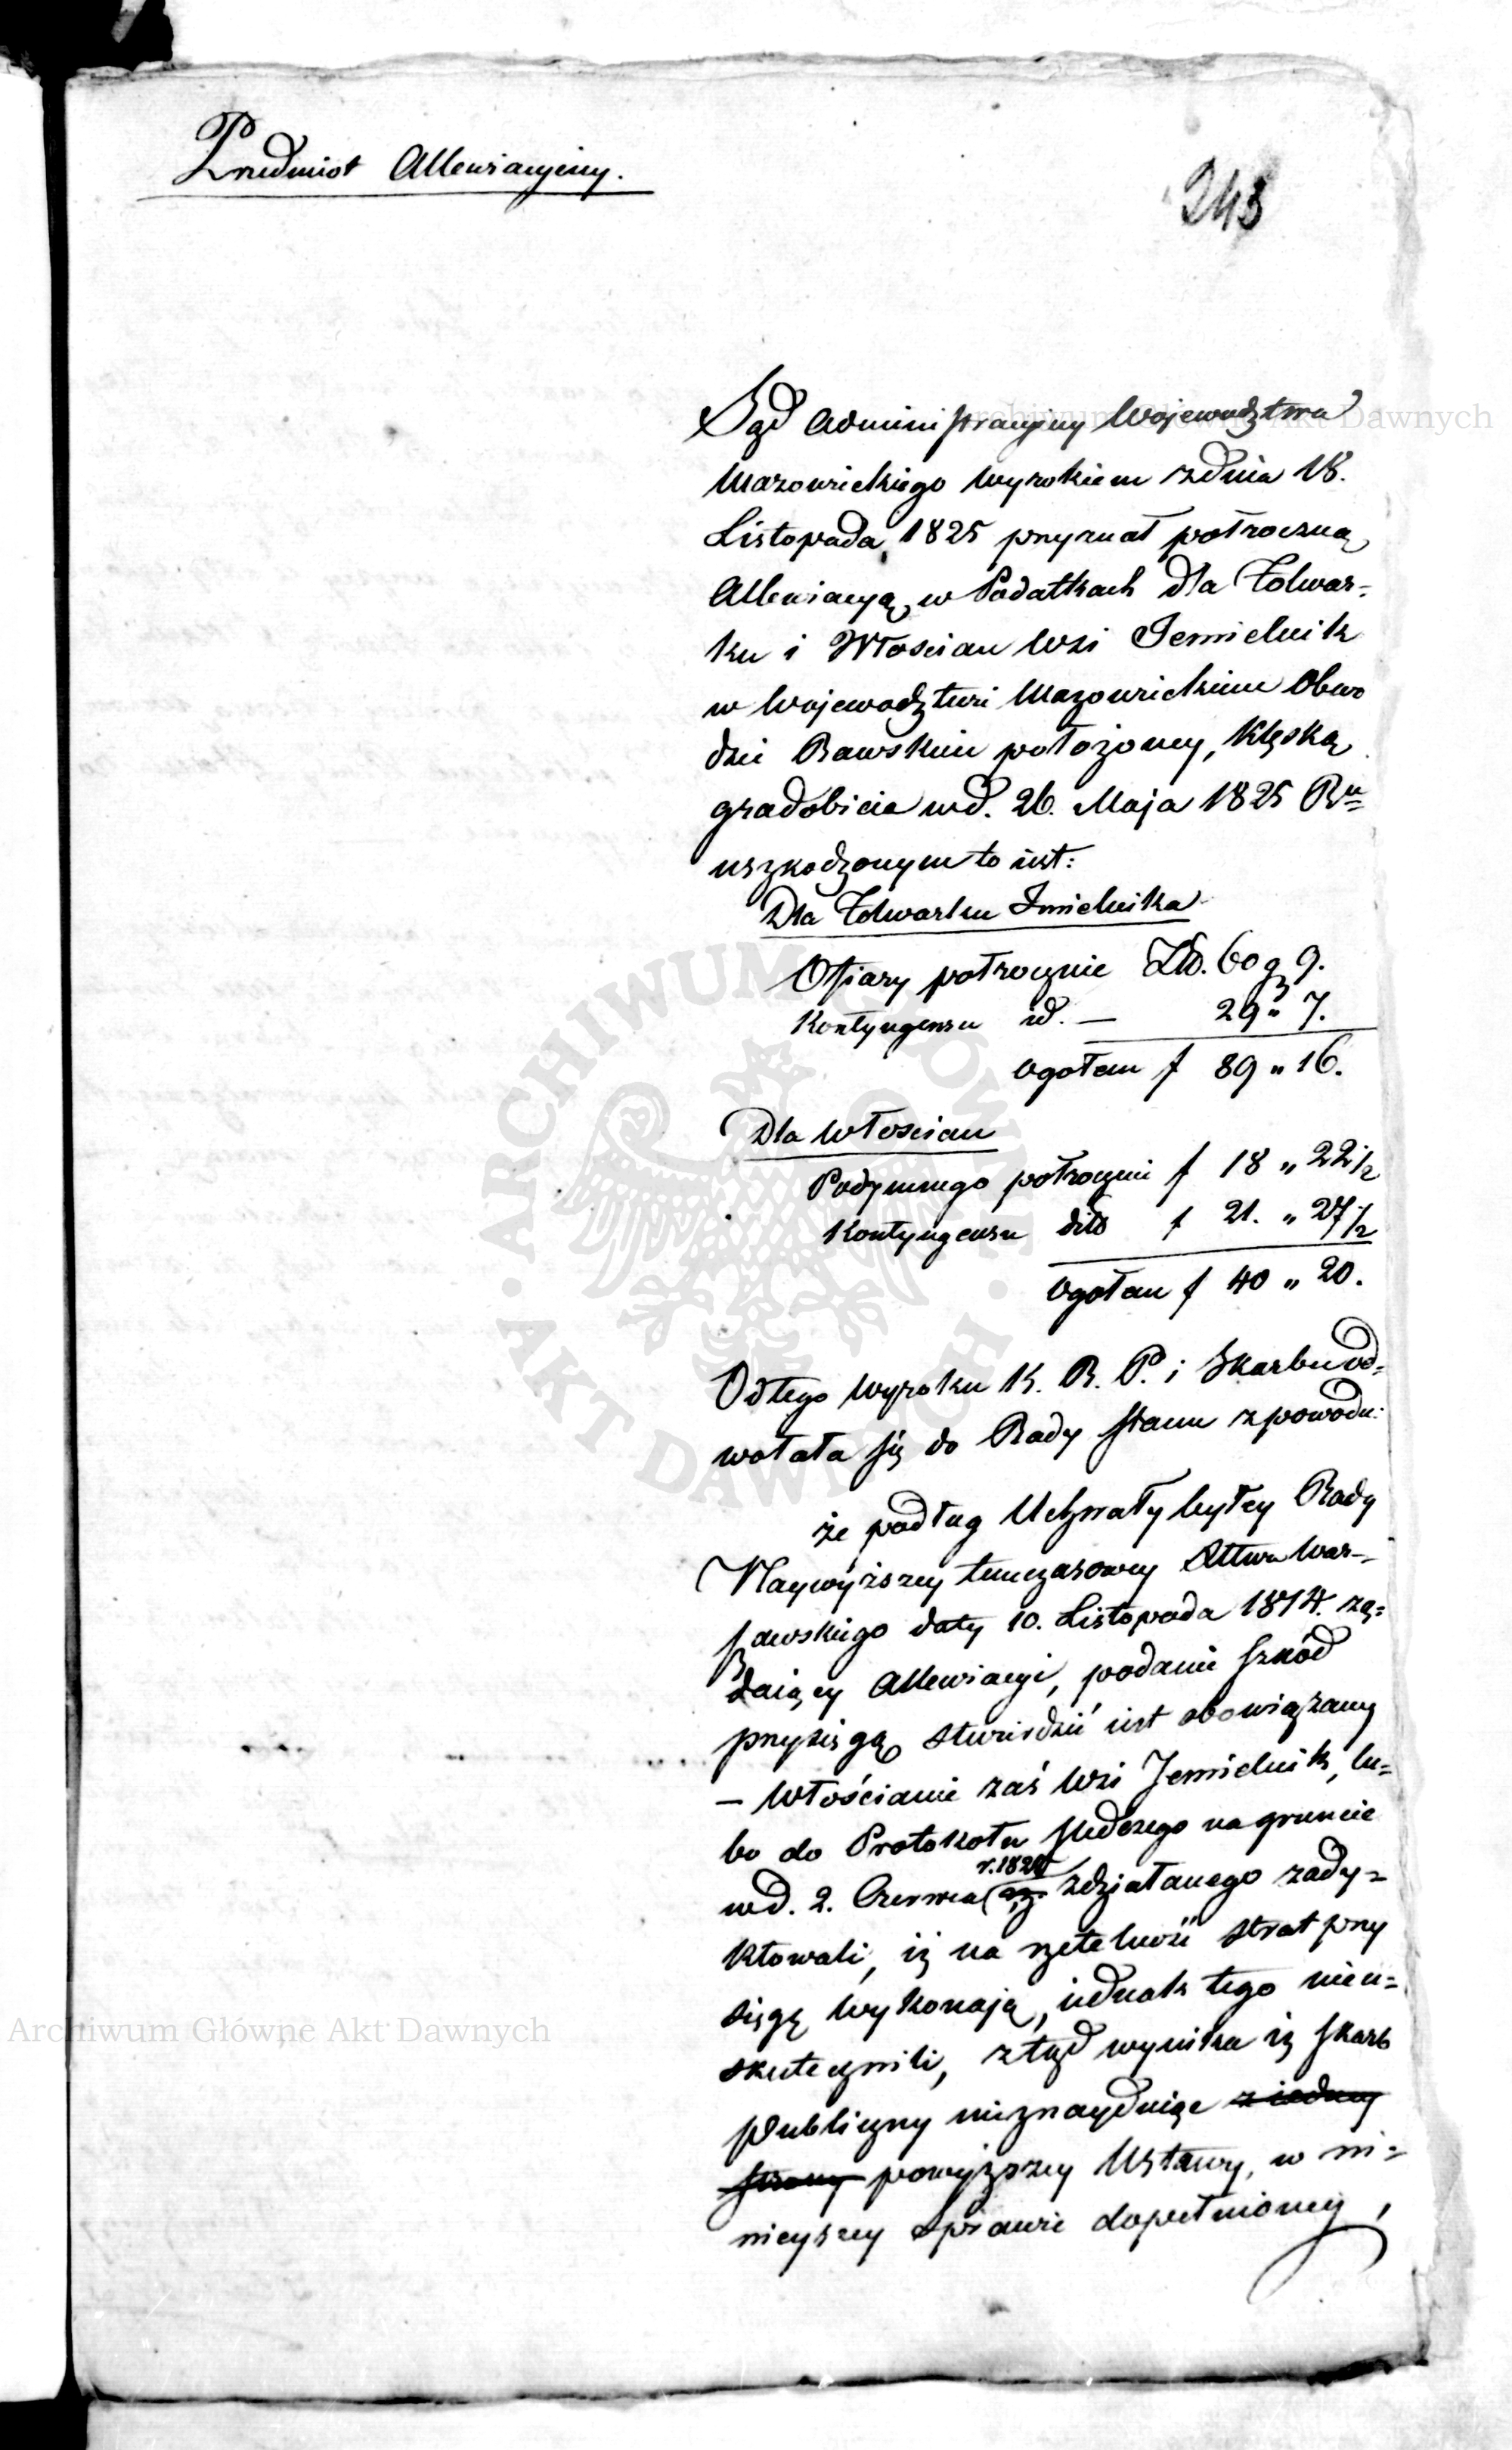 Przedmiot Allewiacyiny.
243
Sąd Administracyiny Województwa
Mazowieckiego wyrokiem z dnia 18.
Listopada 1825 przyznał półroczną
Allewiacyą w Podatkach dla Folwar-
ku i Włoscian Wsi Jemielnik
w Województwi Mazowieckiem Obwo
dzie Rawskim położoney, klęską
gradobicia w d. 26. Maja 1825 Ru
uszkodzonym to iest:
Dla Folwarku Imielnika
Ofiary półrocznie Złp. 60 g 9.
Kontyngensu id. — 29 " 7.
Ogołem f 89 " 16.
Dla Włoscian
Podymnego półroczni f 18 " 22½
Kontyngensu dito f 21. " 27½
Ogołem f 40 " 20.
Od tego wyroku K. R. P. i Skarbu od=
wołała się do Rady Stanu z powodu:
że podług Uchwały byłey Rady
Naywyższey tymczasowey Xttwa War-
szawskiego daty 10. Listopada 1814. żą=
daiący Allewiacyi, podanie szkód
przysięgą stwierdzić iest obowiązany
— Włościanie zaś Wsi Jemielnik, lu=
bo do Protokołu śledczego na gruncie
w d. 2. Czerwca r. 1825 zdziałanego zady=
ktowali, iż na rzetelność strat przy
sięgę wykonają, iednak tego nieu=
skutecznili, ztąd wynika iż Skarb
Publiczny nieznayduiąc z iedney
strony powyższey Ustawy, w ni=
nieyszey sprawie dopełnioney,
Archiwum Główne Akt Dawnych